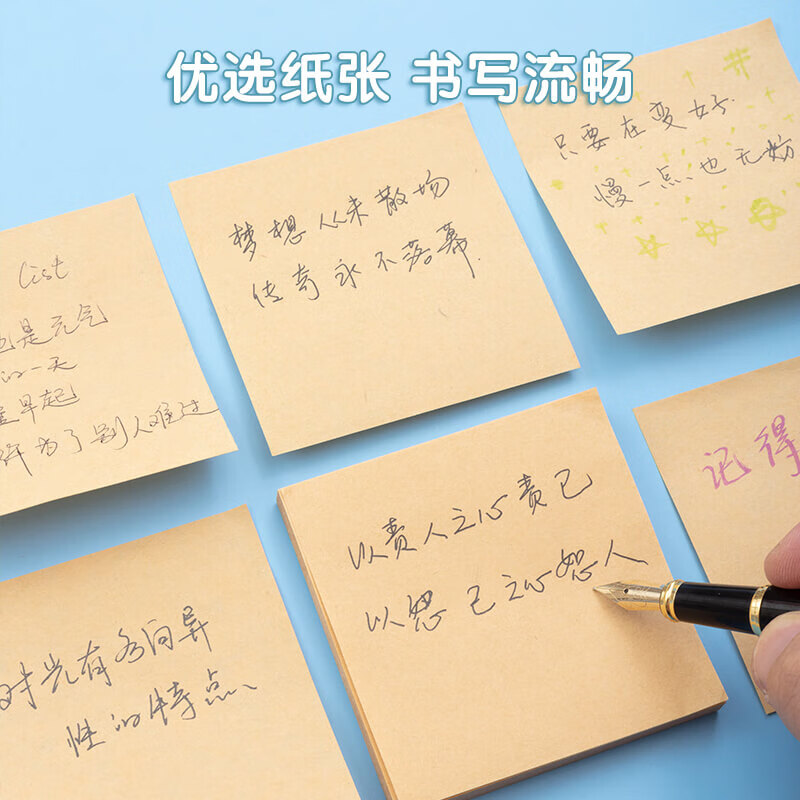 优选纸张 书写流畅
梦想从未散场
传奇永不落幕.
只要在变好
慢一点也无妨
list
也是元气
的一天
早起
许为了别人难过
以责人之心责己
以恕己之心恕人
记得
时光有各向异
性的特点、